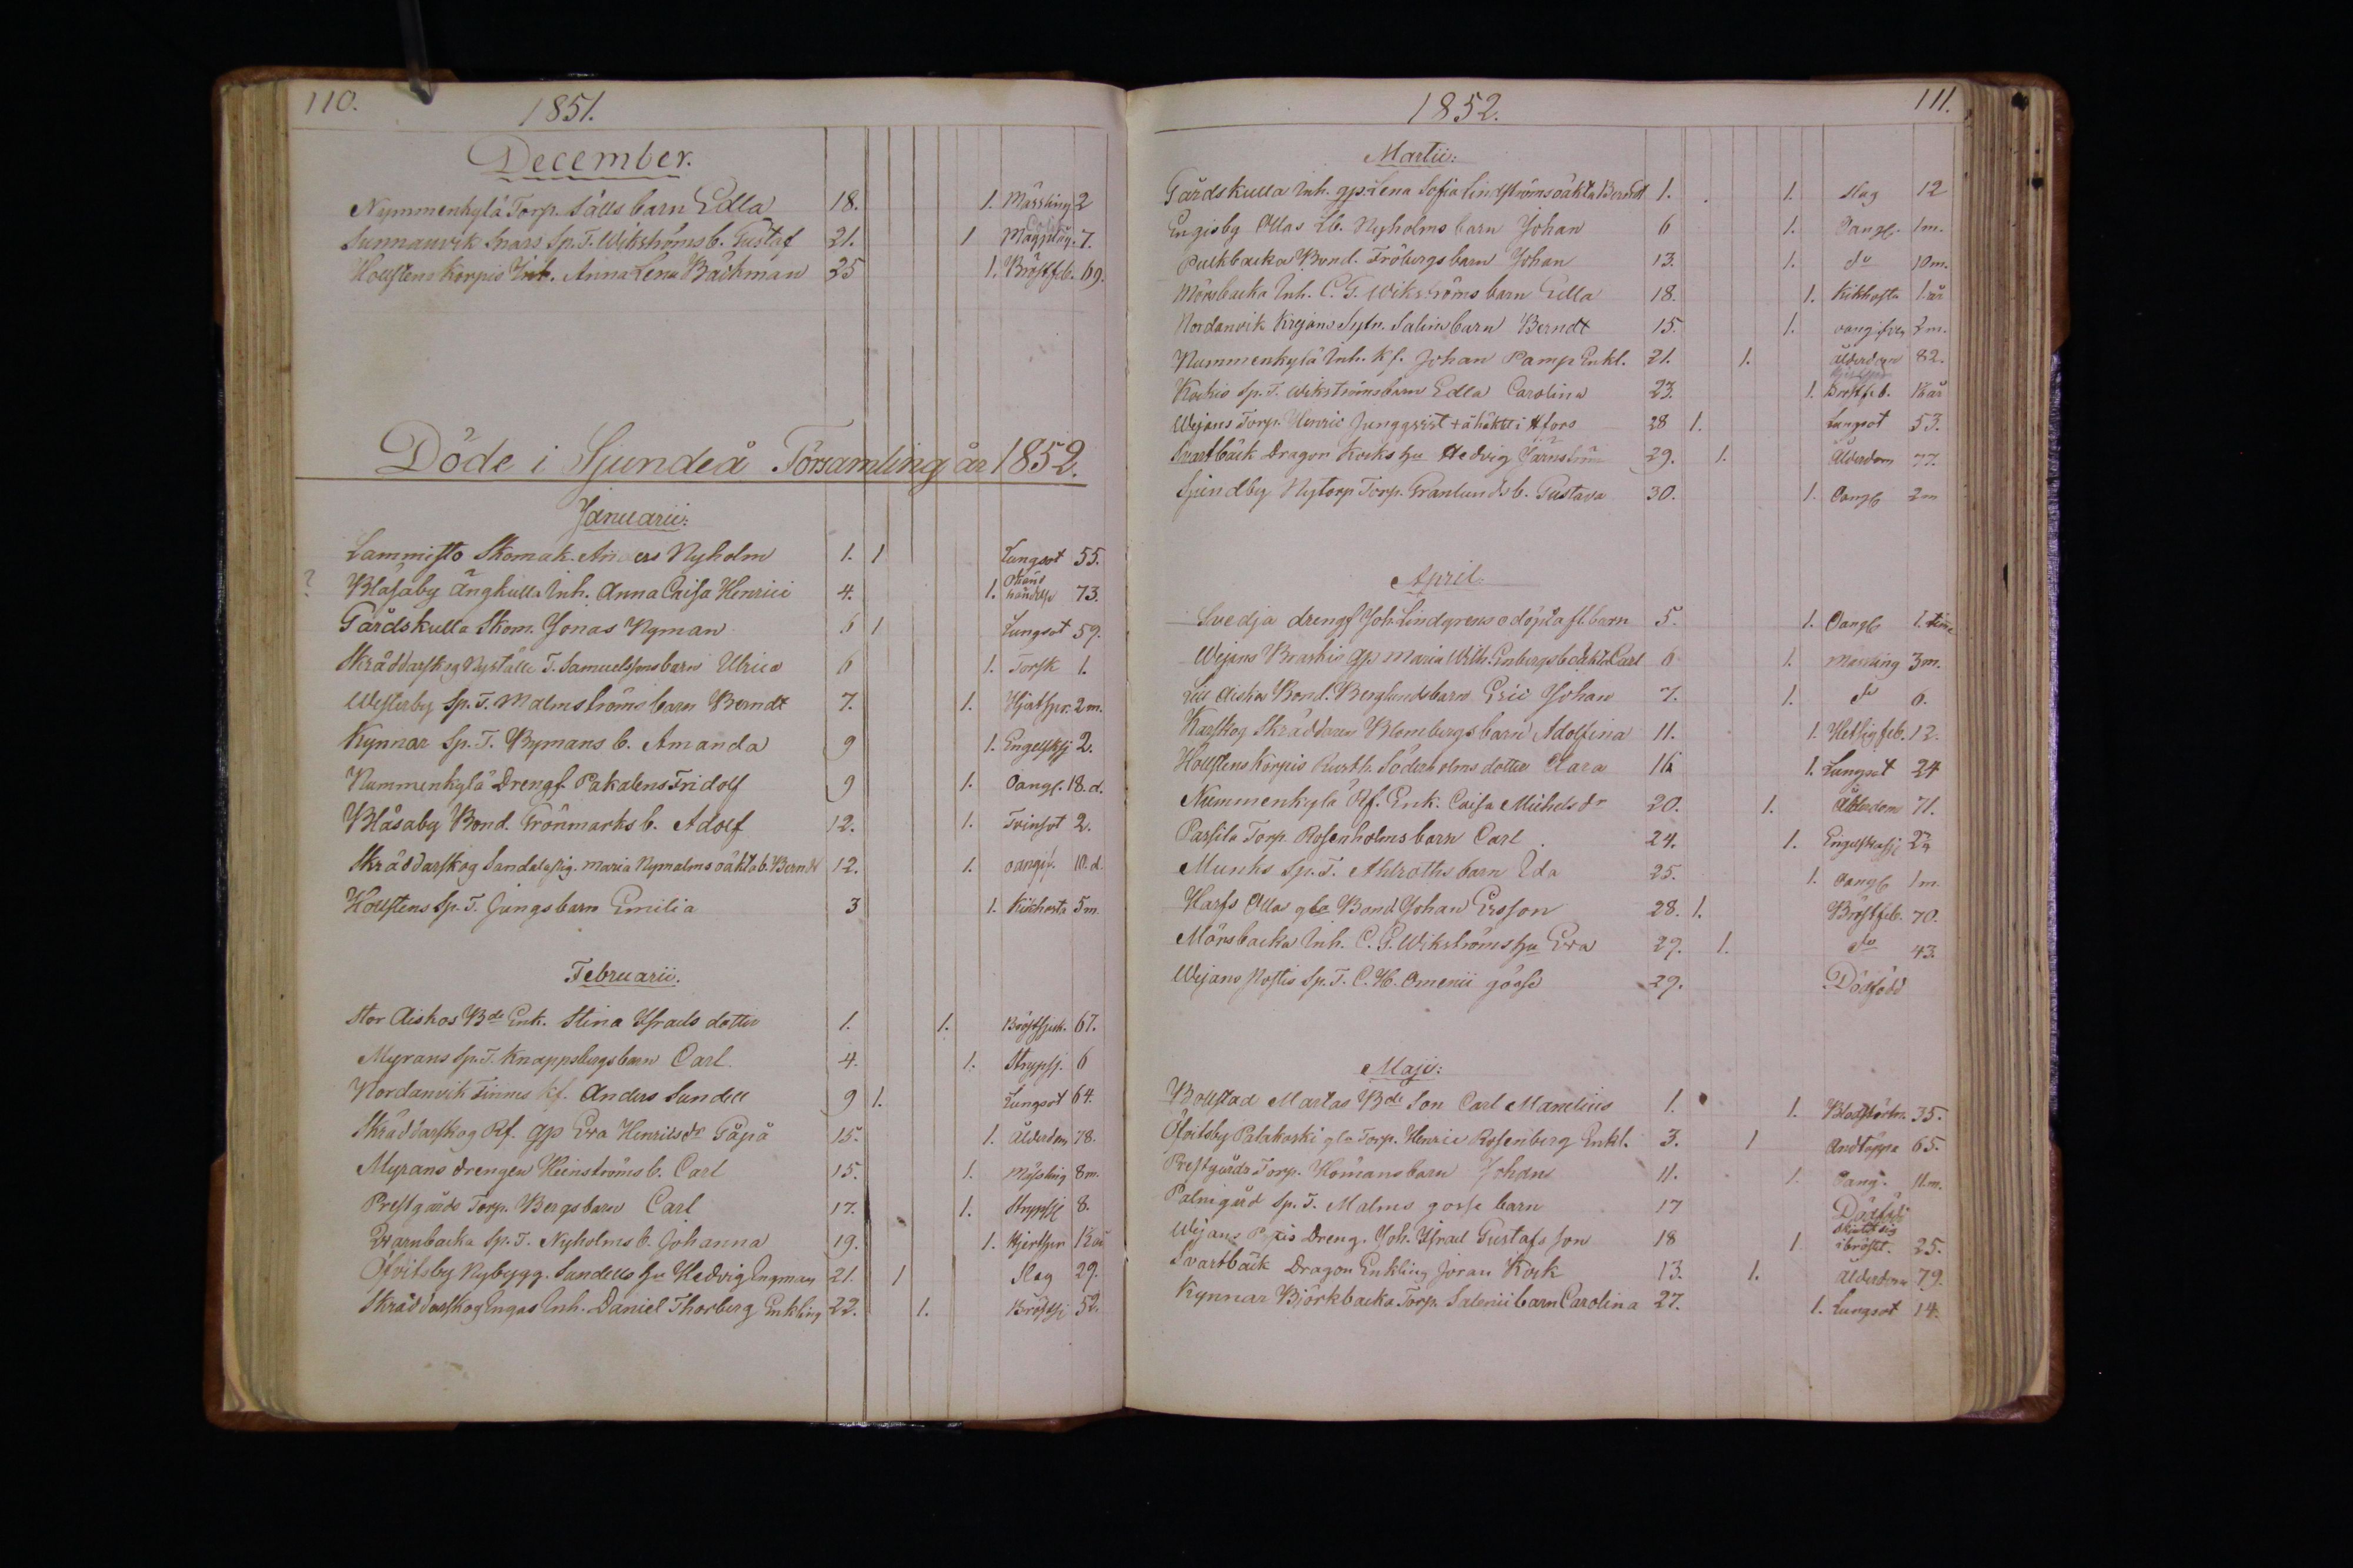 110.
1851.
December.
Nymmenkylä Torp. Sälls barn Edla 18. 1. Mässling 2
Sunnanvik Snars Sp. T. Wikströms b. Gustaf 21. 1 7.
Hollstens Korpis Inh. Anna Lena Bäckman 25 1. Bröstfeb. 69.
Döde i Sjundeå Församling år 1852.
Januarii:
Lammisto Skomak. Anders Nyholm 1. 1 Lungsot 55.
? Blåsaby Ängkulla Inh. Anna Caisa Henrici 4. 1. Okänd händelse 73.
Gårdskulla Skom. Jonas Nyman 6 1 Lungsot 59.
Skräddarskog Nyställe T. Samuelssons barn Ulrica 6 1. Torsk 1.
Westerby Sp. T. Malmströms barn Berndt 7. 1. Hjertspr. 2 m.
Kynnar Sp. T. Bymans b. Amanda 9 1. Engelsksj 2.
Nummenkylä Drengs. Pakalens Fridolf 9 1. Oangf. 18. d.
Blåsaby Bond. Grönmarks b. Adolf 12. 1. Tvinsot 2.
Skräddarskog Sandalas pig. Maria Nymalms oäkta b. Berndt 12. 1. oangif. 10. d.
Hollstens Sp. T. Jungs barn Emilia 3 1. Kikhosta 5 m
Februarii.
Stor Aiskos Bde Enk. Stina Israels dotter 1. 1. Bröstsjuk. 67.
Myrans Sp. T. Knappsbergs barn Carl 4. 1. Strypsj. 6
Nordanvik Finnes Rf. Anders Sundell 9 1. Lungsot 64.
Skräddarskog Rf. gp Eva Henricsdr Gåpå 15. 1. Ålderdom 78.
Myrans drengen Heinströms b. Carl 15. 1. Mässling 8 m.
Prestgårds Torp. Bergs barn Carl 17. 1. Strypsj 8.
Qvarnbacka Sp. T. Nyholms b. Johanna 19. 1. Hjertspr 1½ år
Öfvitsby Nybygg. Sundells hu Hedvig Engman 21. 1 Slag 29.
Skräddarskog Ingas Inh. Daniel Thorberg Enkling 22. 1. Bröstsj 52.
1852.
111.
Martii:
Gårdskulla Inh. gp. Lena Sofia Lindströms oäkta Berndt 1. 1. Slag 12
Engisby Ollas Lb. Nyholms barn Johan 6 1. Oangf. 1 m.
Pulkbacka Bond. Fröbergs barn Johan 13. 1. do 10 m.
Mörsbacka Inh. C. G. Wikströms barn Edla 18. 1. Kikhosta 1. år
Nordanvik Krejans Sytn. Salins barn Berndt 15. 1. oangifven 2 m.
Nummenkylä Inh. Kf. Johan Pamp Enkl. 21. 1. Ålderdom 82.
Kockis Sp. T. Wikströms barn Edla Carolina 23. 1. Bröstfeb. 1½ år
Wejans Torp. Henric Ljunggvist + å häktet i Hfors 28 1. Lungsot 53.
Svartbäck Dragon Kocks hu Hedvig Järnström 29. 1. Ålderdom 77.
Sjundby Nytorp Torp. Granlunds b. Gustava 30. 1. Oangf 2 m
April.
Svedja drengs Joh. Lindgrens odöpta fl. barn 5. 1. Oangf 1. timme
Wejans Braskis gp Maria Wilh. Enbergs oäkta Carl 6 1. Mässling 3 m.
Lill Aiskos Bond. Berglunds barn Eric Johan 7. 1. do 6.
Karskog Skräddaren Blombergs barn Adolfina 11. 1. Hetsig feb. 12.
Hollstens Korpis Rusth. Söderholms dotter Clara 16 1. Lungsot 24
Nummenkylä Rf. Enk. Caisa Michels dr 20. 1. Ålderdom 71.
Passila Torp. Rosenholms barn Carl. 24. 1. Engelskasj 2½
Munks Sp. T. Ahlroths barn Ida 25. 1. Oangf 1 m.
Harfs Ollas gla Bond. Johan Ersson 28. 1. Bröstfeb. 70.
Mörsbacka Inh. C. G. Wikströms hu Eva 29. 1. do 43.
Wejans Rostis Sp. T. C. H. Omenii gosse 29. Dödfödd
Maji:
Bollstad Martas Bde Son Carl Mamelius 1. 1. Blodstörtn. 35.
Öfvitsby Palakoski gla Torp. Henric Rosenberg Enkl. 3. 1 Andtäppa 65.
Prestgårds Torp. Hömans barn Johan 11. 1. Oang. 11. m.
Palmgård Sp. T. Malms gosse barn 17 Dödfödd
Wejans Dreng. Joh. Israel Gustafs son 18 1 skurit sig i bröstet. 25.
Svartbäck Dragon Enkling Joran Kock 13. 1. Ålderdom 79.
Kynnar Björkbacka Torp. Salenii barn Carolina 27. 1. Lungsot 14.